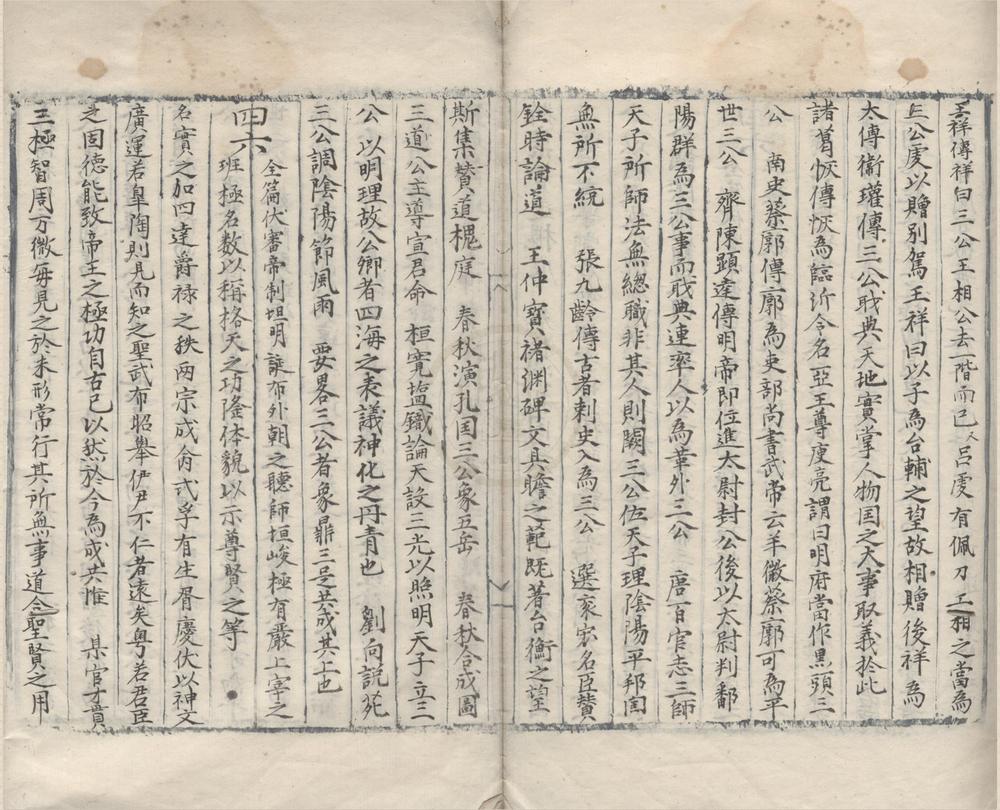 王祥傳祥曰三公王相公去一階而已人吕虔有佩刀工相之當為
三公虔以贈别駕王祥曰以子為台輔之望故相贈後祥為
太傅衛瓘傳三公戢典天地實掌人物国之大事取義扵此
諸葛恢傳恢為臨沂令名亞王導庾亮謂曰明府當作黒頭三
公 南史蔡廓傳廓為吏部尚書武帝云羊徽蔡廓可為平
世三公 齊陳顕逹傳明帝即位進太尉封公後以太尉判鄱
陽群為三公事而戢典連率人以為華外三公 唐百官志三師
天子所師法無總職非其人則闕三公佐天子理陰陽平邦国
無所不統 張九齡傳古者刺史入為三公 選袁宏名臣賛
銓時論道 王仲寳褚渊碑文具瞻之範既著台衡之望
斯集賛道槐庭 春秋演孔国三公象五岳 春秋合成圖
三道公主導宣君命 桓寛塩鐡論天設三光以照明天子立三
公以明理故公卿者四海之表議神化之丹青也 劉向説苑
三公調陰陽節風雨 要畧三公者象鼎三足共成其上也
四六 全篇伏審帝制坦明誕布外朝之聽師垣峻極有嚴上宰之
班極名数以稱格天之功隆体貌以示尊賢之等
名實之加四逹爵禄之秩两宗成肏式孚有生胥慶伏以神文
廣運若臯陶則見而知之聖武布昭舉伊尹不仁者遠矣粤若君臣
之固徳能致帝王之極功自古已以然於今為成共惟 㫖官才貫
三極智周万微毎見之於未形常行其所無事道合聖賢之用